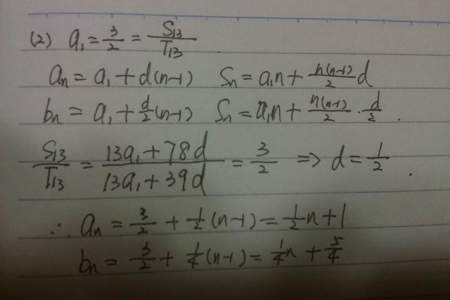 (2) a₁ = 3/2 = S₁₃/T₁₃.
aₙ = a₁ + d(n-1)   Sₙ = a₁n + n(n-1)/2 d
bₙ = a₁ + d/2 (n-1)   Sₙ = a₁n + n(n-1)/2 · d/2.
S₁₃/T₁₃ = (13a₁ + 78d)/(13a₁ + 39d) = 3/2 ⇒ d = 1/2.
∴ aₙ = 3/2 + 1/2 (n-1) = 1/2 n + 1
bₙ = 3/2 + 1/4 (n-1) = 1/4 n + 5/4